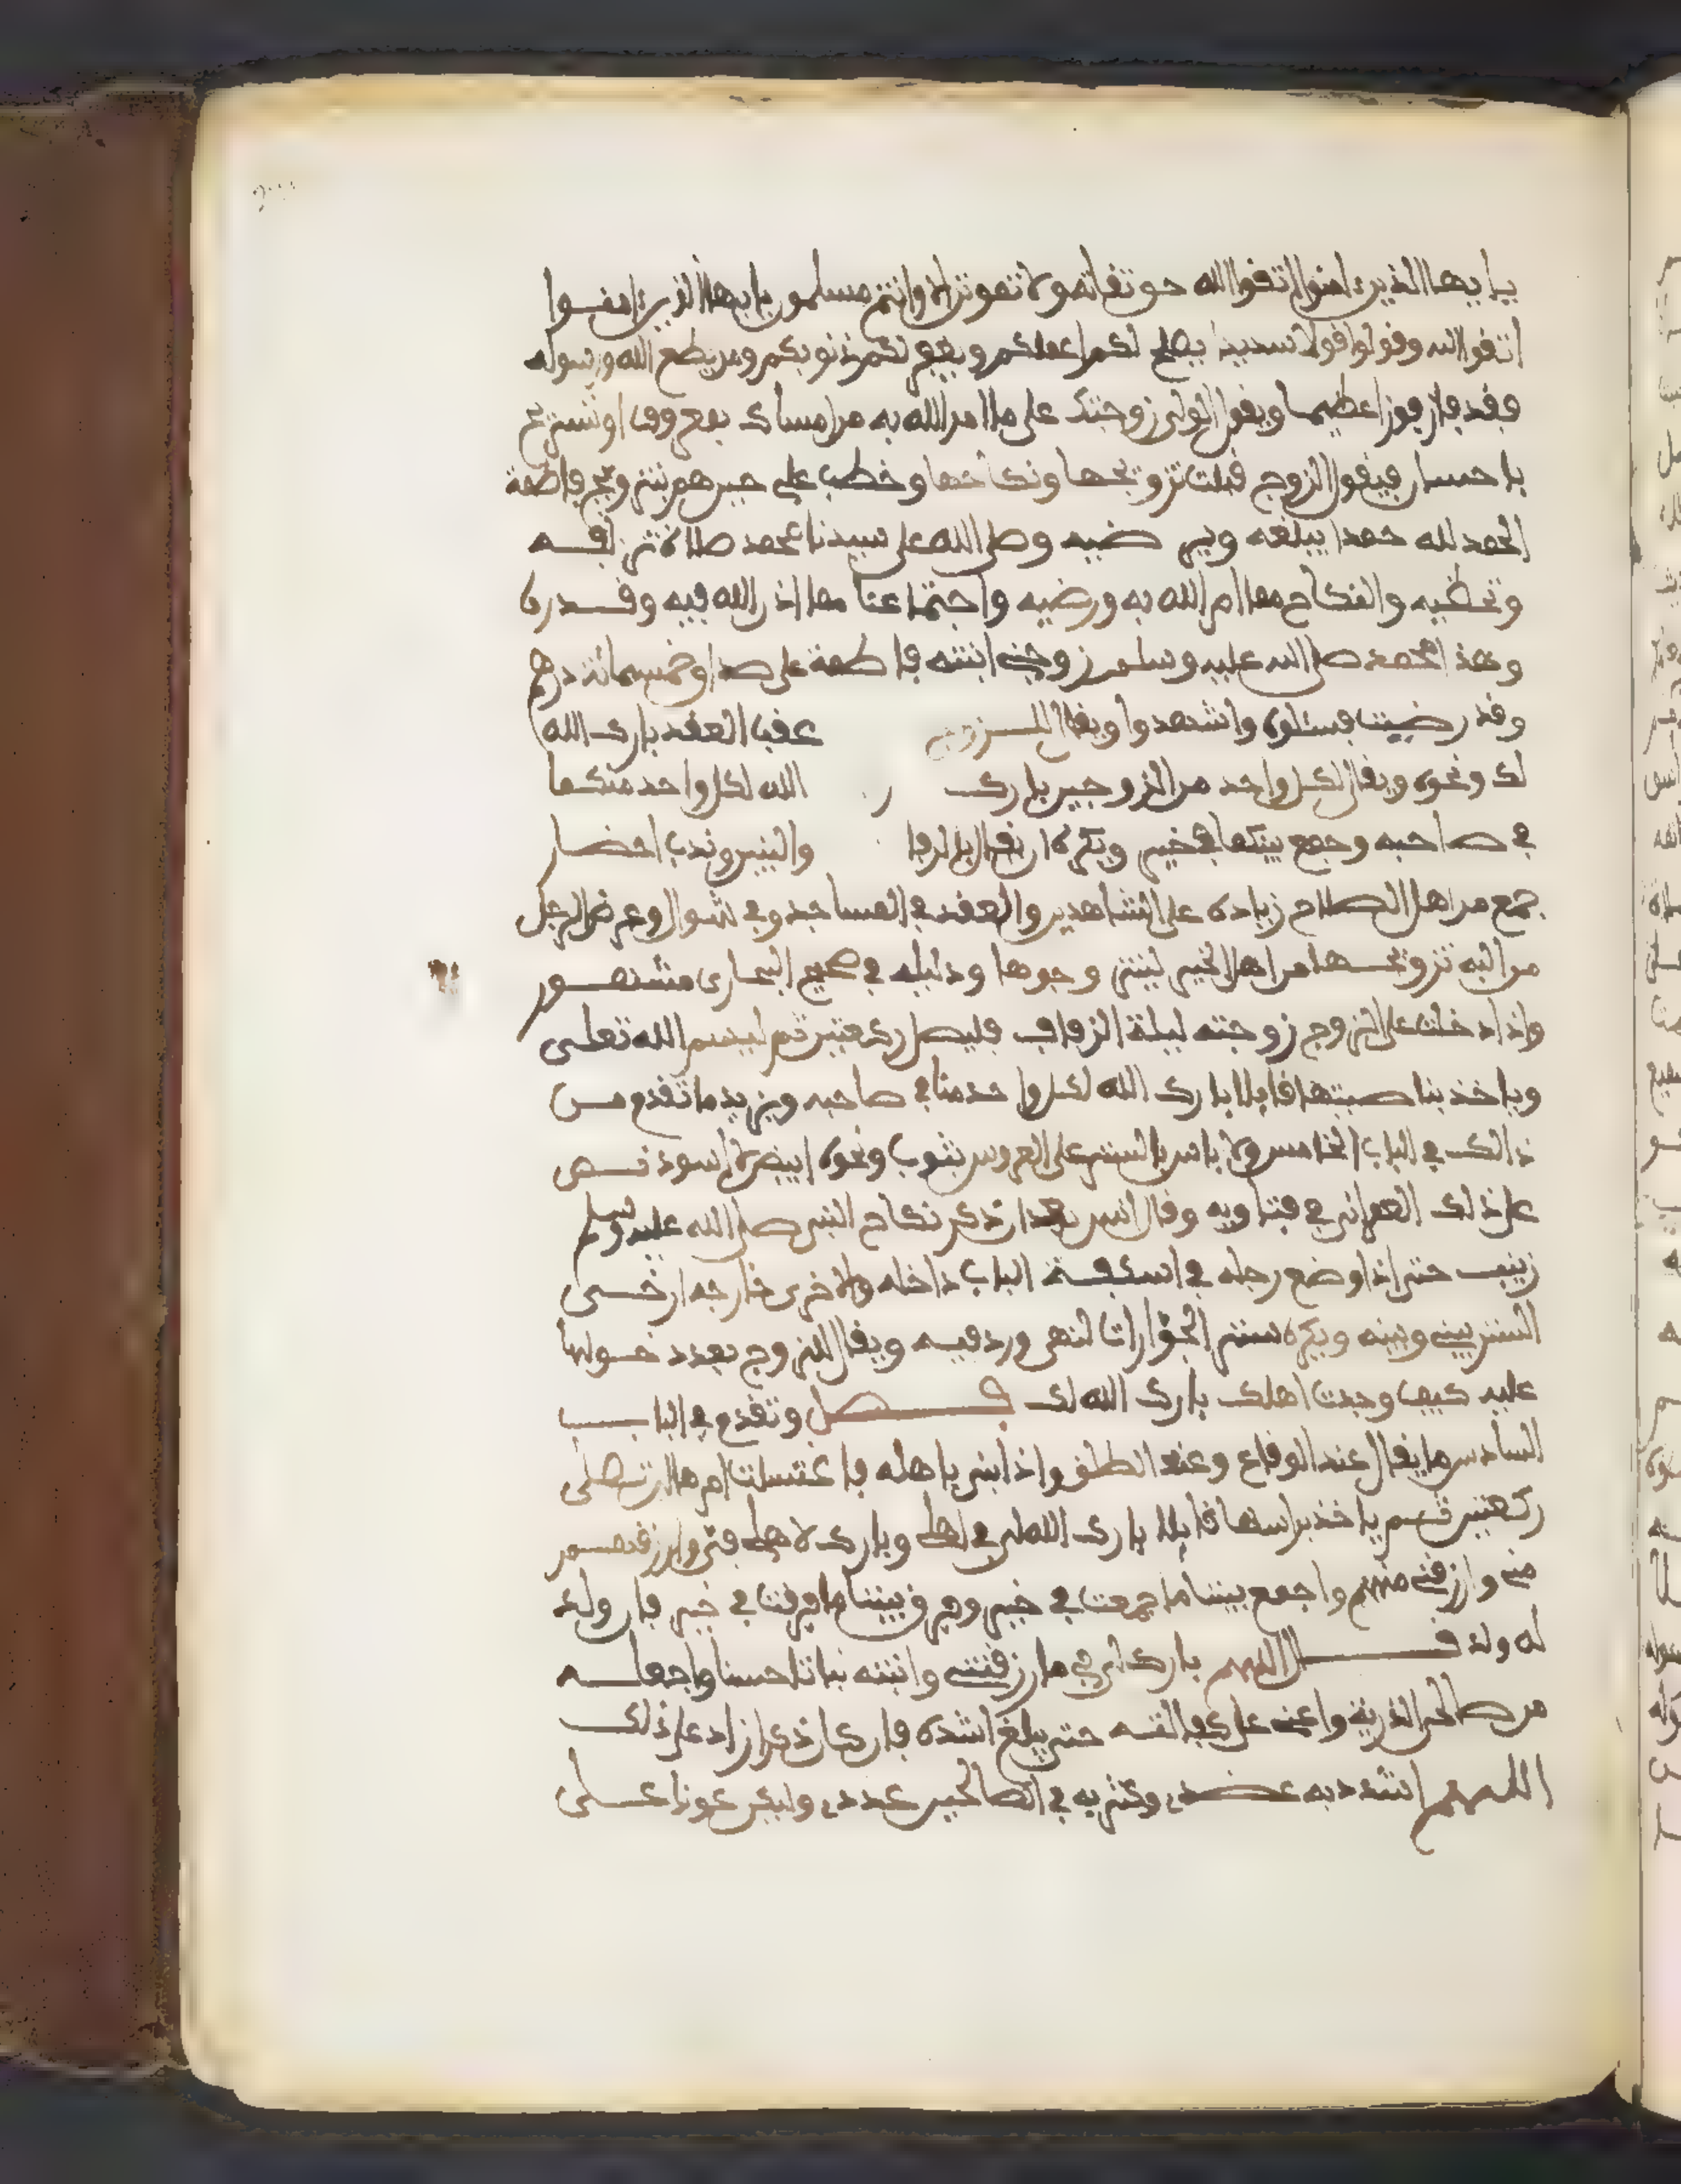 يايها الذين ءامنوا اتقوا الله حق تقاته ولا تموتن الا وانتم مسلمون يايها الذين ءامنوا
اتقوا الله وقولوا قولا سديدا يصلح لكم اعملكم ويغفر لكم ذنوبكم ومن يطع الله ورسوله
فقد فاز فوزا عظيما ويقول الولي زوجتك على ما امر الله به من امساك بمعروف او تسريح
باحسان فيقول الزوج قبلت تزويجها ونكاحها وخطب علي حين هم بتزويج فاطمة
الحمد لله حمدا يبلغه ويرضيه وصلى الله على سيدنا محمد صلاة تزلفه
وتحظيه والنكاح مما امر الله به ورضيه واجتماعنا مما اذن الله فيه وقدره
وهذا محمد صلى الله عليه وسلم زوجني ابنته فاطمة على صداق خمسمائة درهم
وقد رضيت فسئلوه واشهدوا ويقال للمتزوج عقب العقد بارك الله
لك ونحوه ويقال لكل واحد من الزوجين بارك الله لكل واحد منكما
في صاحبه وجمع بينكما في خير ويكره ان يقال بالرفا والبنين وندب احضار
جمع من اهل الصلاح زيادة على الشاهدين والعقد في المساجد وفي شوال وعرض الرجل
من اليه تزويجها من اهل الخير ليتزوجوها ودليله في صحيح البخاري مشهور
واذا دخلت على الزوج زوجته ليلة الزفاف فليصل ركعتين ثم ليسم الله تعلى
وياخذ بناصيتها قايلا بارك الله لكل واحد منا في صاحبه ويزيد ما تقدم من
ذالك في الباب الخامس ولا باس بالستر على العروس بثوب ونحوه ابيض لا اسود نص
على ذلك في فتاويه وقال انس بعد ان ذكر نكاح النبي صلى الله عليه وسلم
زينب حتى اذا وضع رجله في اسكفة الباب داخله والاخرى خارجه ارخى
الستر بيني وبينه ويكره ستر الجدارات لنهي ورد فيه ويقال للزوج بعد دخولها
عليه كيف وجدت اهلك بارك الله لك فصل وتقدم في الباب
السادس ما يقال عند الوقاع وعند الطلق واذا بنى باهله فاغتسلت امرها ان تصلي
ركعتين ثم ياخذ براسها قايلا بارك الله لي في اهلي وبارك لاهلي في وارزقهم
مني وارزقني منهم واجمع بيننا ما جمعت في خير وفرق بيننا ما فرقت في خير فان ولد
له ولد قال اللهم بارك لي في ما رزقتني وانبته نباتا حسنا واجعله
من صالحي الذرية واعني على كفالته حتى يبلغ اشده فان كان ذكرا زاد على ذلك
اللهم اشدد به عضدي وكثر به في الصالحين عددي وليكن عونا على